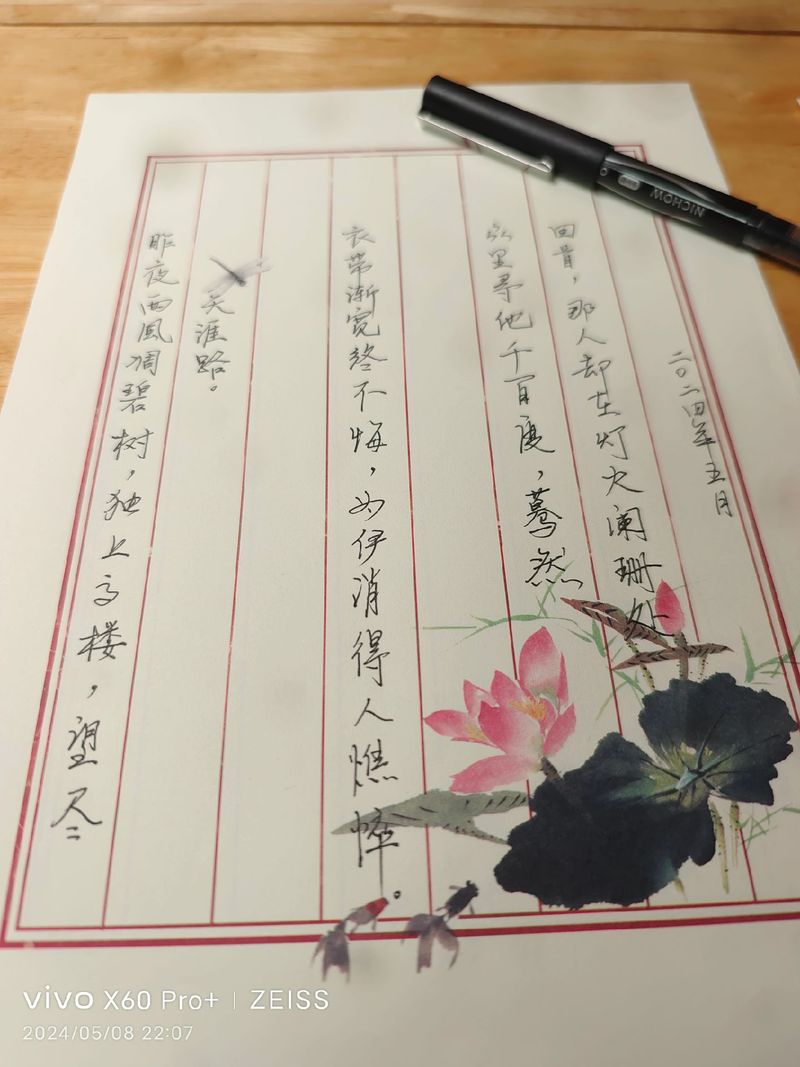 昨夜西風凋碧树，独上高楼，望尽
天涯路。
衣带渐宽终不悔，为伊消得人憔悴。
众里寻他千百度，蓦然
回首，那人却在灯火澜珊处
二〇二四年五月
NICHOW
vivo X60 Pro+ | ZEISS
2024/05/08 22:07